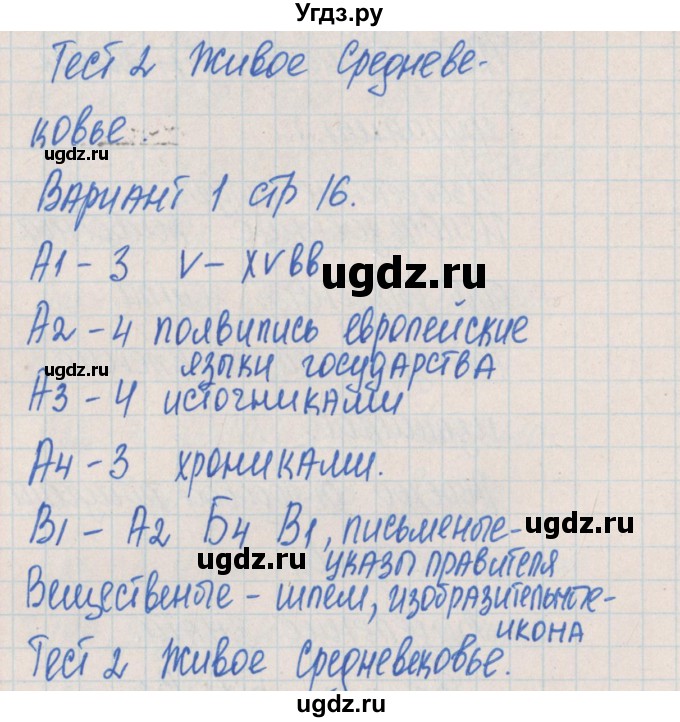 Угдз.ру
Тест 2 Живое Средневе-
ковье.
ugdz.ru
ugdz.ru
Вариант 1 стр 16.
А1 - 3 V - XV вв
ugdz.ru
А2 - 4 появились европейские
языки государства
ugdz.ru
ugdz.ru
А3 - 4 источниками
А4 - 3 хрониками.
В1 - А2 Б4 В1, письменые-
ugdz.ru
ugdz.ru
указы правителя
Вещественые - шлем, изобразительные-
икона
Тест 2 Живое Средневековье.
ugdz.ru
ugdz.ru
ugdz.ru